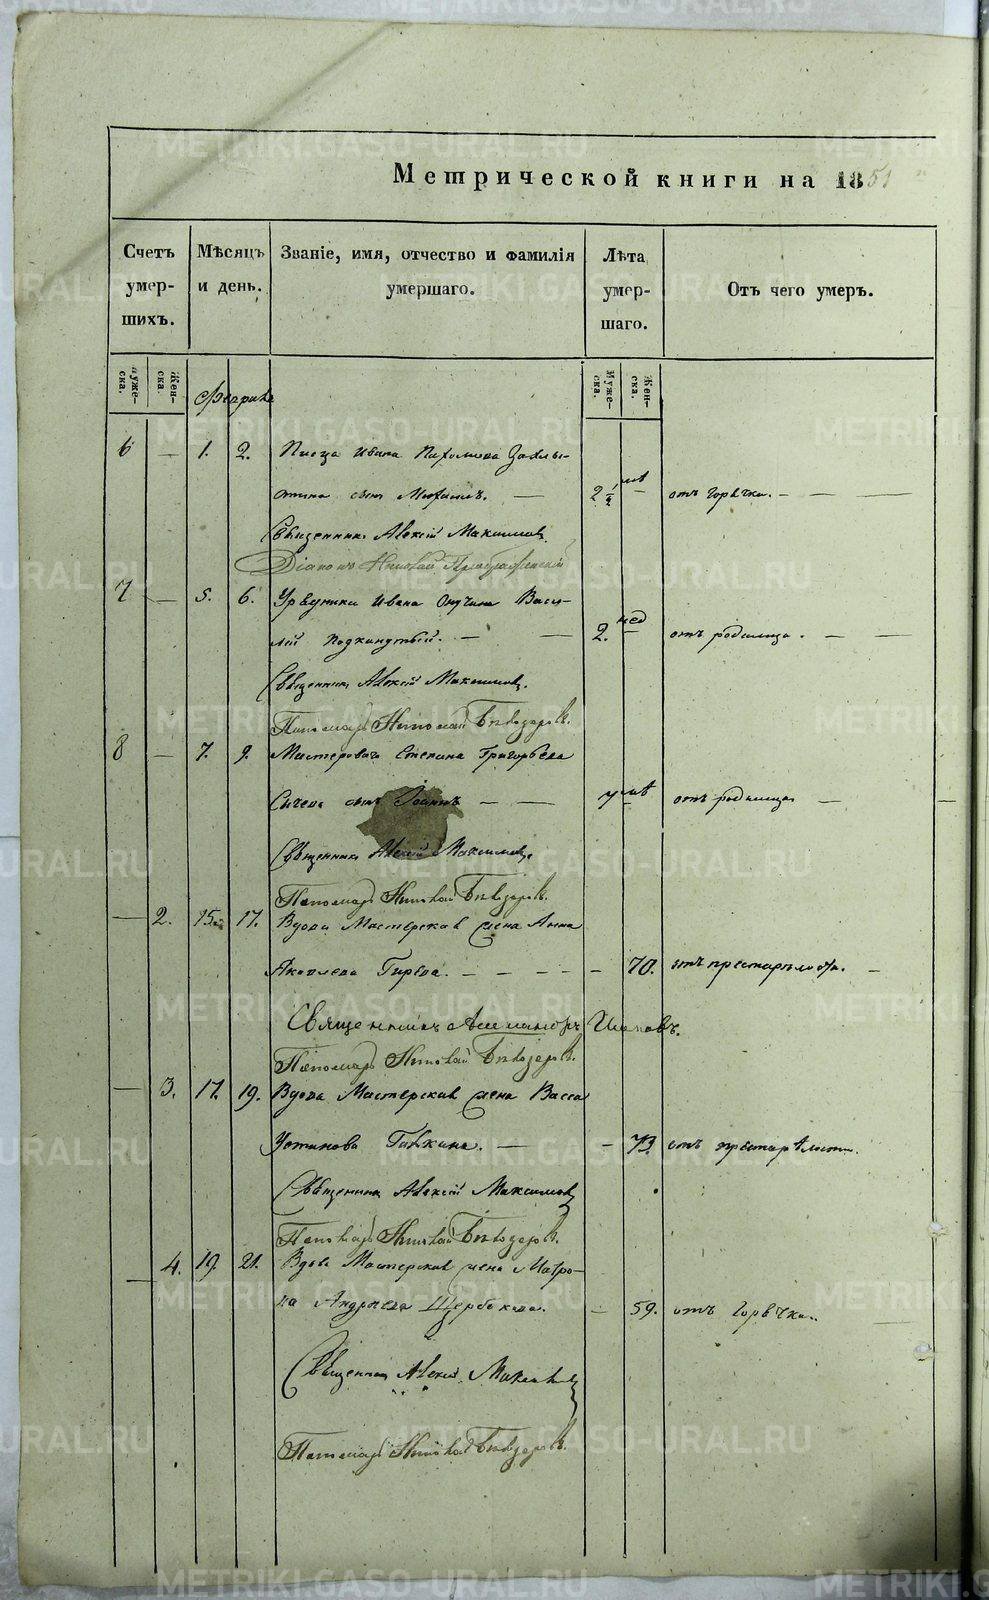 Метрической книги на 1851
Счетъ умершихъ.
Мѣсяцъ и день.
Званіе, имя, отчество и фамилія умершаго.
Лѣта умершаго.
Отъ чего умеръ.
Муже-ска.
Жен-ска.
Муже-ска.
Жен-ска.
6 — 1. 2. Писца Ивана Пахомова
сынъ — 2 1/2 — отъ горячки. — — —
Священникъ Алексій Максимовъ.
Діаконъ Николай Преображенскій
7 — 5. 6. Урядника Ивана Васи-
лій подкидный. — — 2. нед — отъ родимца. — —
Священникъ Алексій Максимовъ.
Пономарь Николай
8 — 7. 9. Мастероваго Степана Григорьева
Сычева сынъ Іоаннъ — — отъ родимца —
Священникъ Алексій Максимовъ.
Пономарь Николай
— 2. 15. 17. Вдова Мастерская жена Анна
Яковлева — — — — 70. отъ престарѣлости. —
Священникъ
Пономарь Николай
— 3. 17. 19. Вдова Мастерская жена Васса
Устинова — — 73. отъ престарѣлости.
Священникъ Алексій Максимовъ
Пономарь Николай
— 4. 19 21. Вдова Мастерская жена Матро-
на Андреева Щербакова. — 59. отъ горячки.
Священникъ Алексій Максимовъ
Пономарь Николай
METRIKI.GASO-URAL.RU